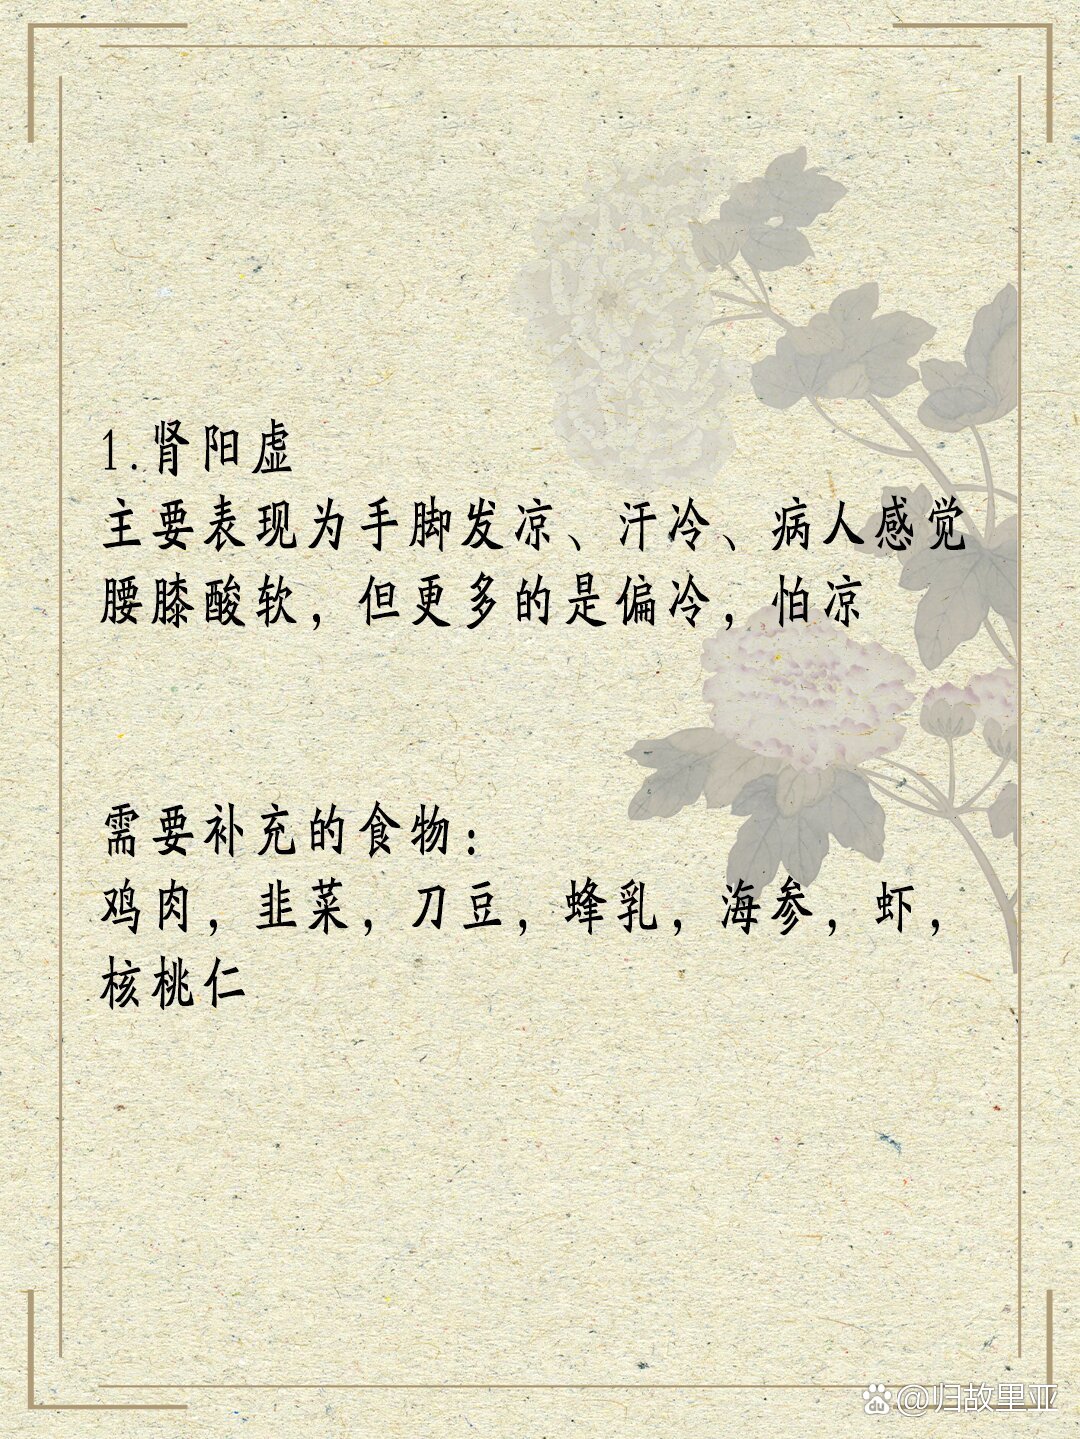 1.肾阳虚
主要表现为手脚发凉、汗冷、病人感觉
腰膝酸软，但更多的是偏冷，怕凉
需要补充的食物：
鸡肉，韭菜，刀豆，蜂乳，海参，虾，
核桃仁
du @归故里亚